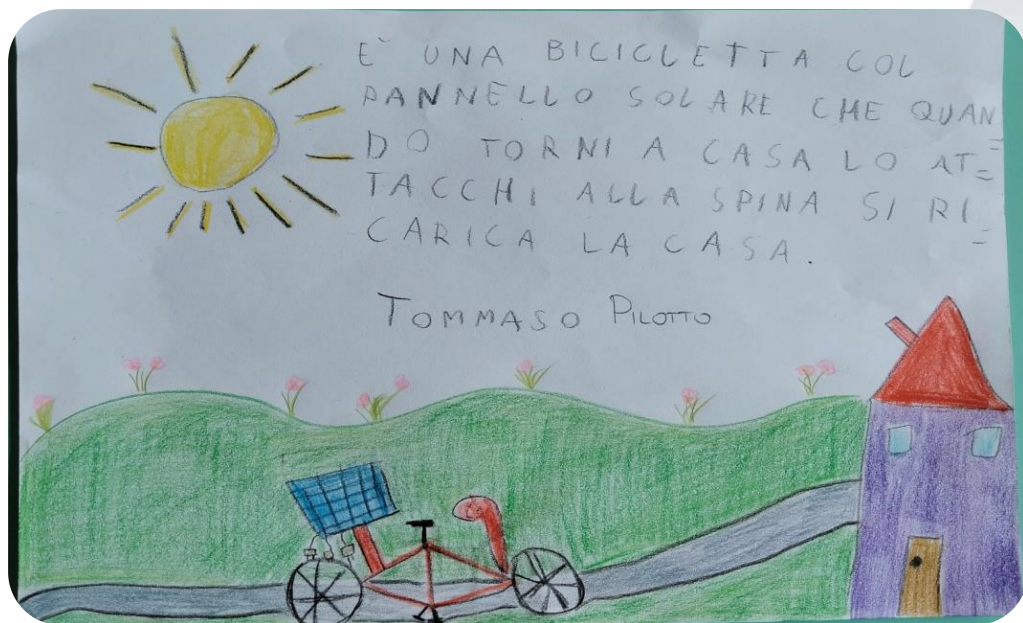 È UNA BICICLETTA COL
PANNELLO SOLARE CHE QUAN=
DO TORNI A CASA LO AT=
TACCHI ALLA SPINA SI RI=
CARICA LA CASA.
TOMMASO PILOTTO